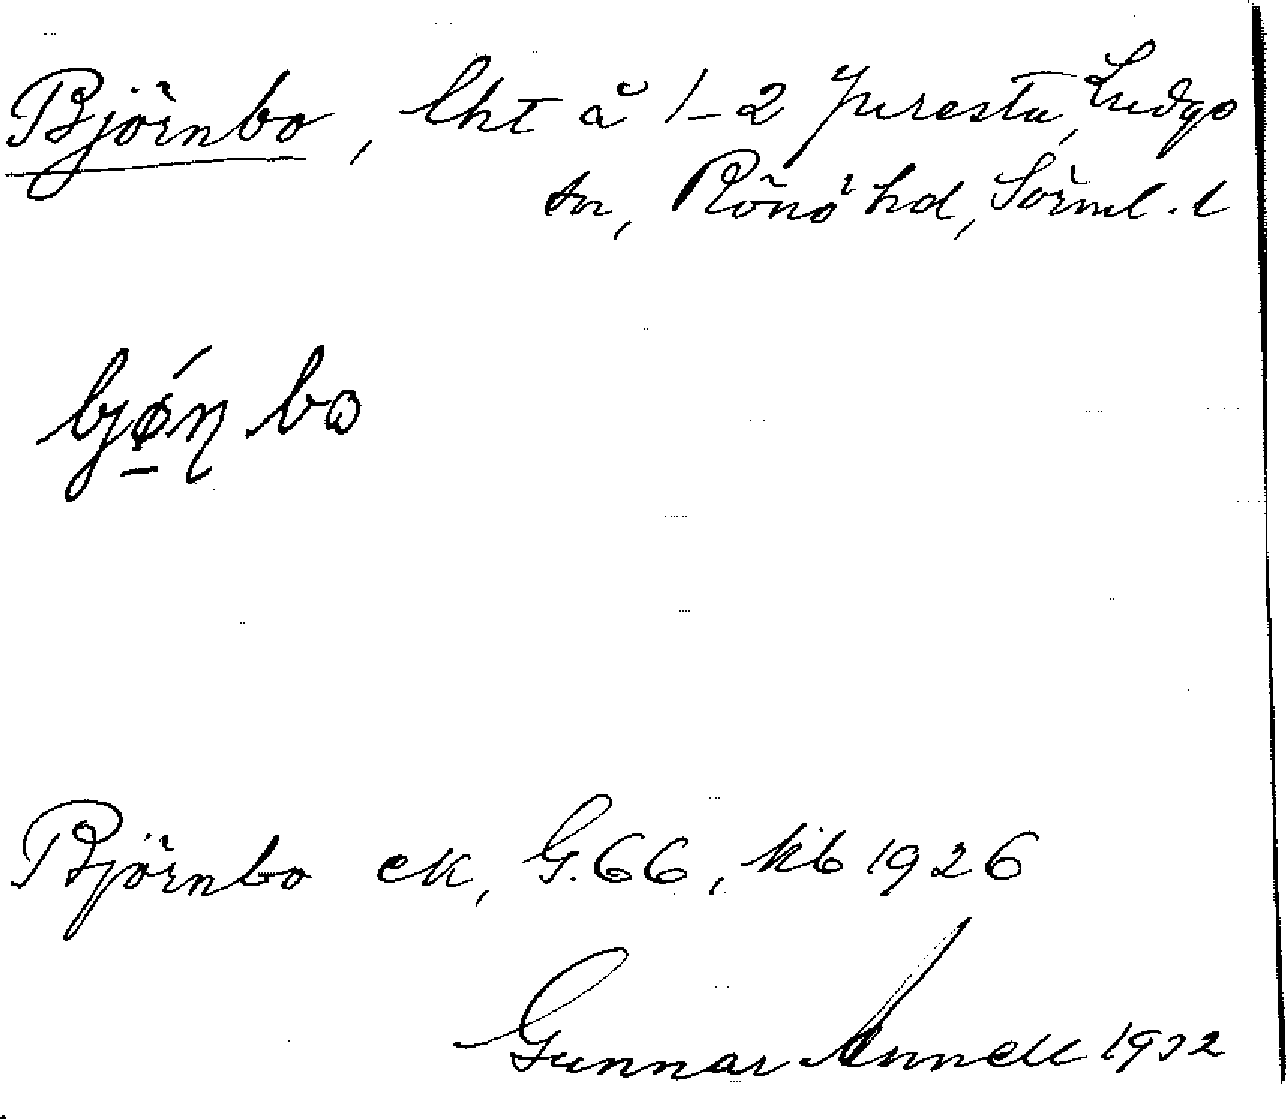 Björnbo, lht å 1-2 Juresta, Ludgo
sn, Rönö hd, Sörml. l
bjǿ̱n bo
Björnbo ek, G.66, kb 1926
Gunnar Annell 1932